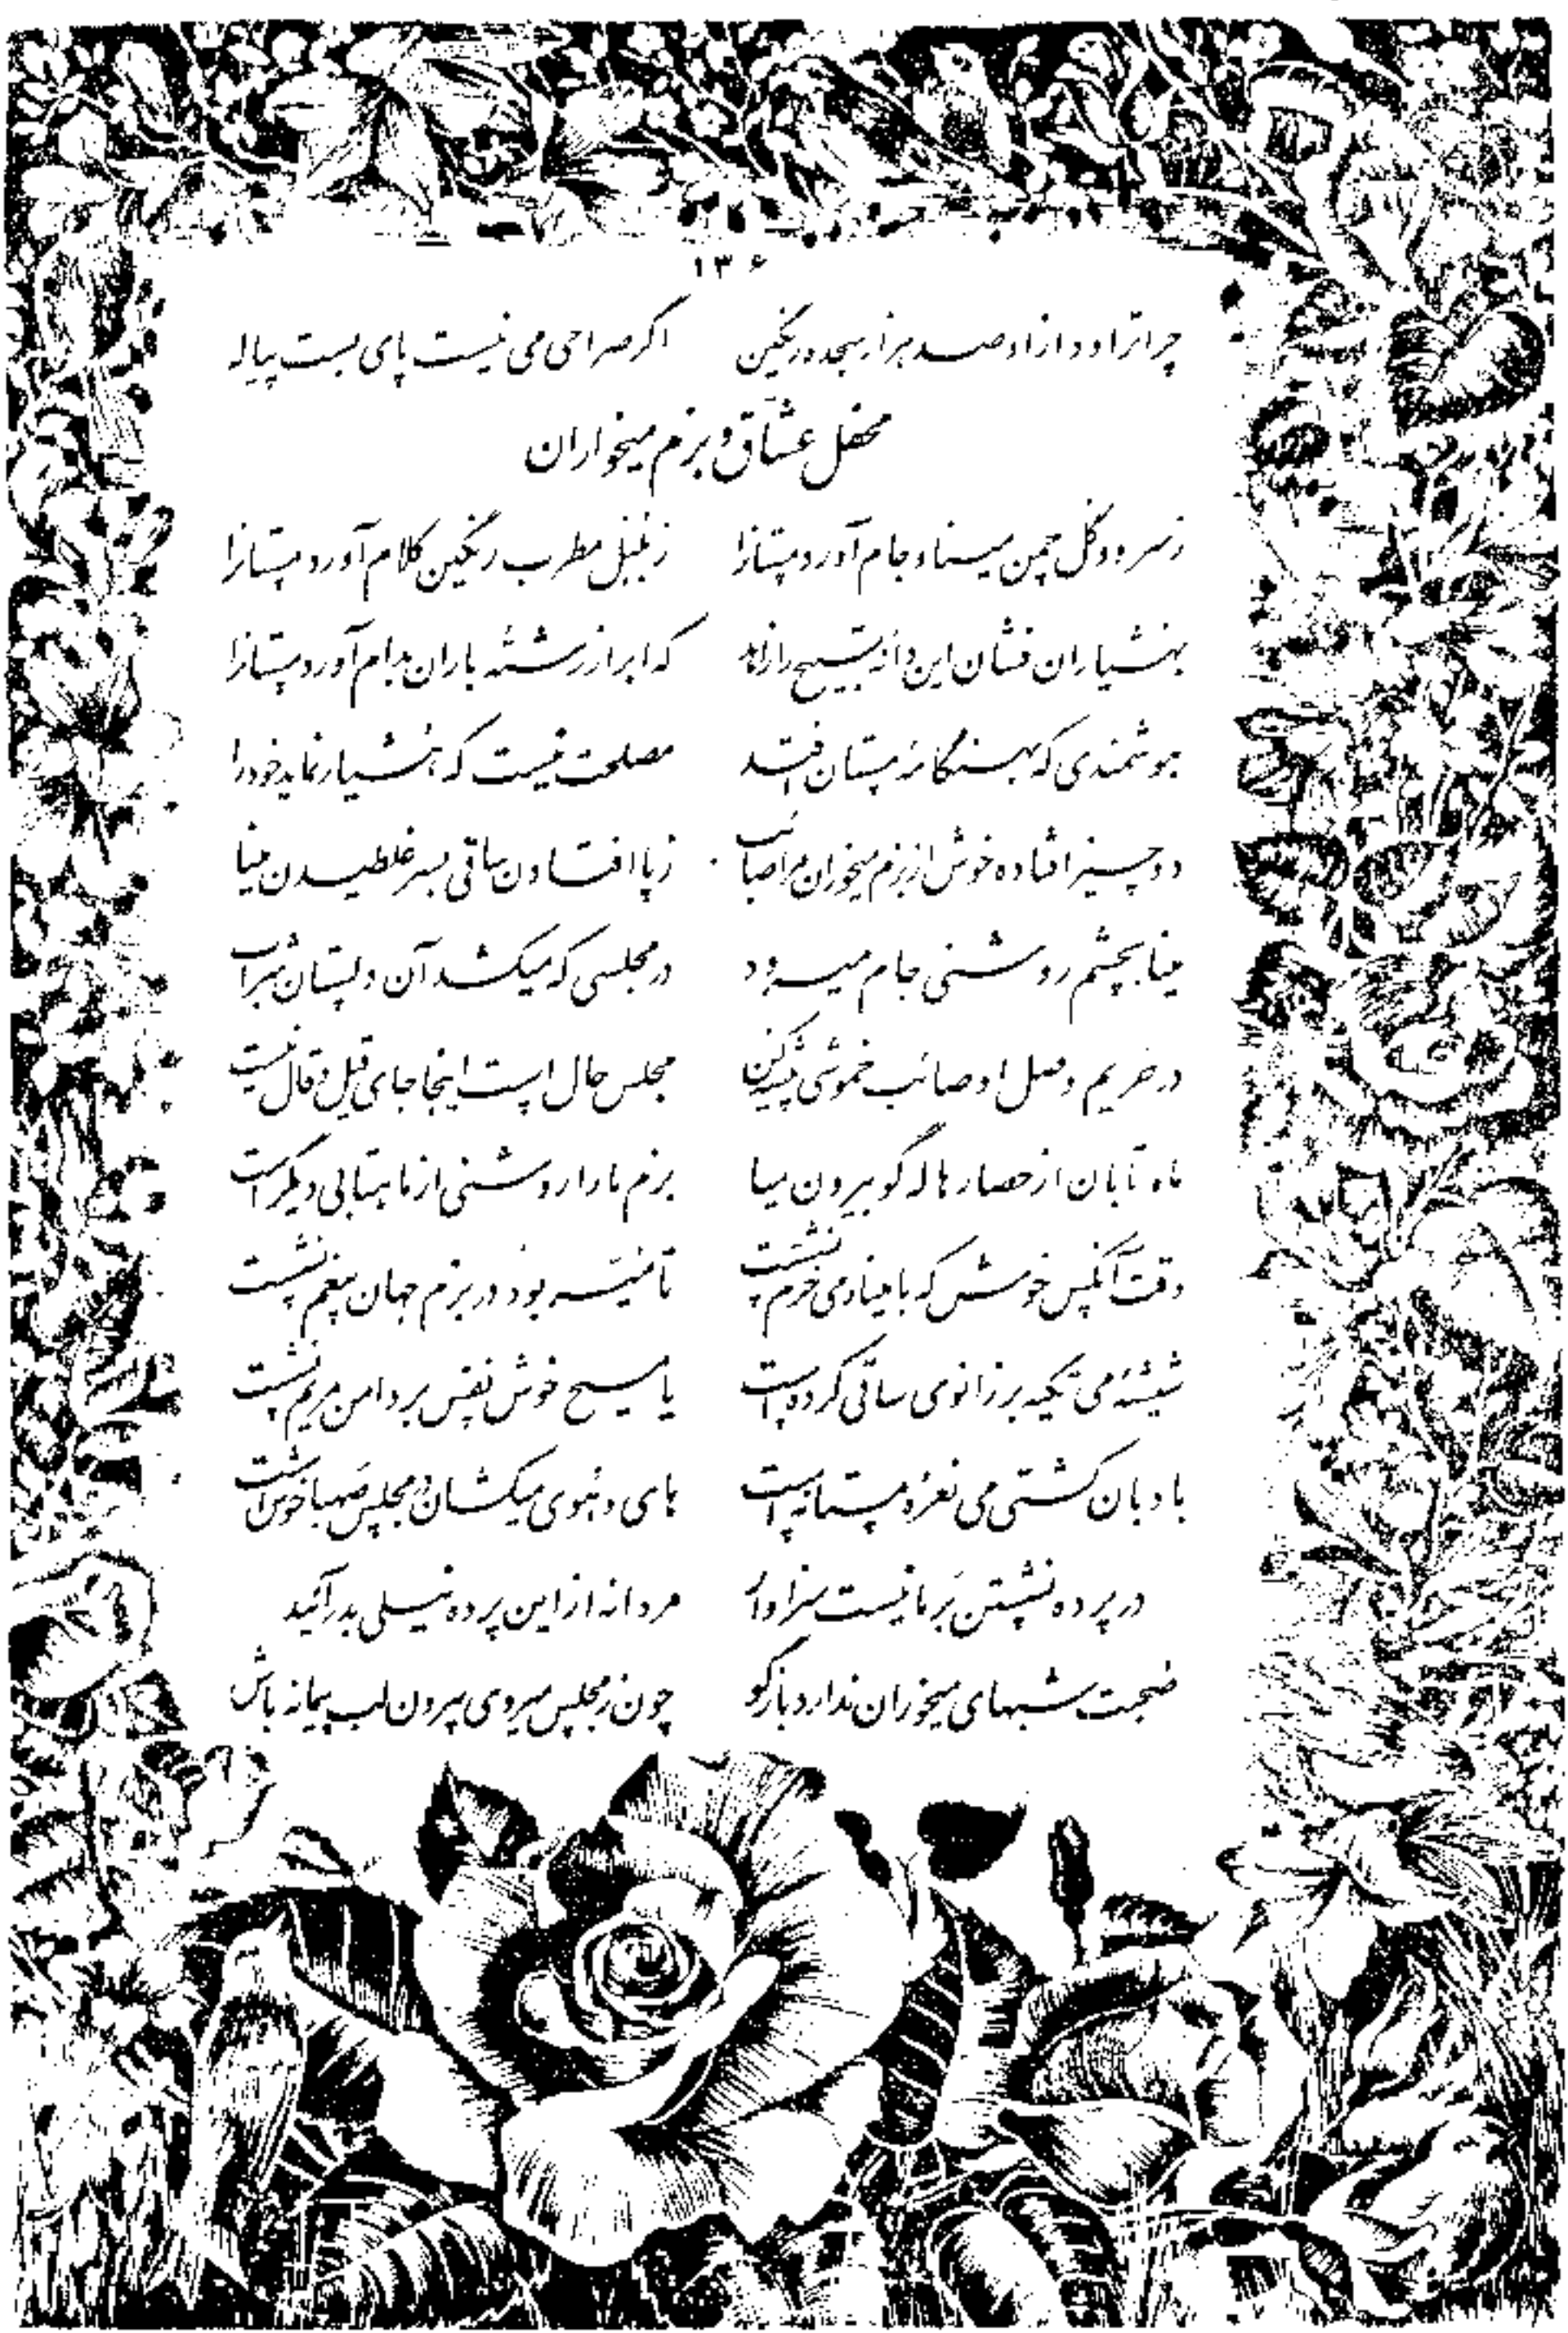 ۱۳۶
چرا تراود از او صد هزار سجده رنگین اگر صراحی می نیست پای بست پیاله
محفل عشاق و بزم میخواران
ز سرو و گل چمن مینا و جام آورد مستانرا ز بلبل مطرب رنگین کلام آورد مستانرا
بهشیاران فشان این دانه تسبیح را زاهد که ابر از رشته باران بدام آورد مستانرا
هوشمندی که بهنگامه مستان افتد مصلحت نیست که هشیار نماید خود را
دو چیز افتاده خوش از بزم میخوران مرا صائب ز پا افتادن ساقی بسر غلطیدن مینا
مینا بچشم روشنی جام میرود در مجلسی که میکشد آن دلستان شراب
در حریم وصل او صائب خموشی پیشه کن مجلس حال است اینجا جای قیل و قال نیست
ماه تابان از حصار هاله گو بیرون میا بزم ما را روشنی از ماهتابی دیگر است
وقت آنکس خوش که با مینای می خرم نشست تا میسر بود در بزم جهان بیغم نشست
شیشه می تکیه بر زانوی ساقی کرده است یا مسیح خوش نفس بر دامن مریم نشست
بادبان کشتی می نعره مستانه است های و هوی میکشان در مجلس صهبا خوش است
در پرده نشستن بر ما نیست سزاوار مردانه از این پرده نیلی بدر آئید
صحبت شبهای میخوران ندارد بازگو چون ز مجلس میروی بیرون لب پیمانه باش